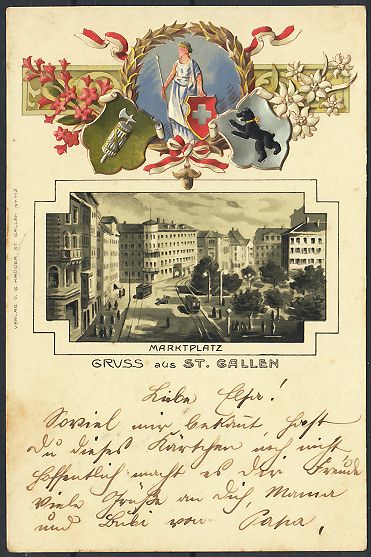 VERLAG V. G. KRÜGER, ST. GALLEN No 112.
MARKTPLATZ
GRUSS aus ST. GALLEN
Liebe Elsa!
Soviel mir bekannt, hast
Du dieses Kärtchen noch nicht
hoffentlich macht es dir Freude
Viele Grüße an Dich, Mama
und Bubi von Papa,